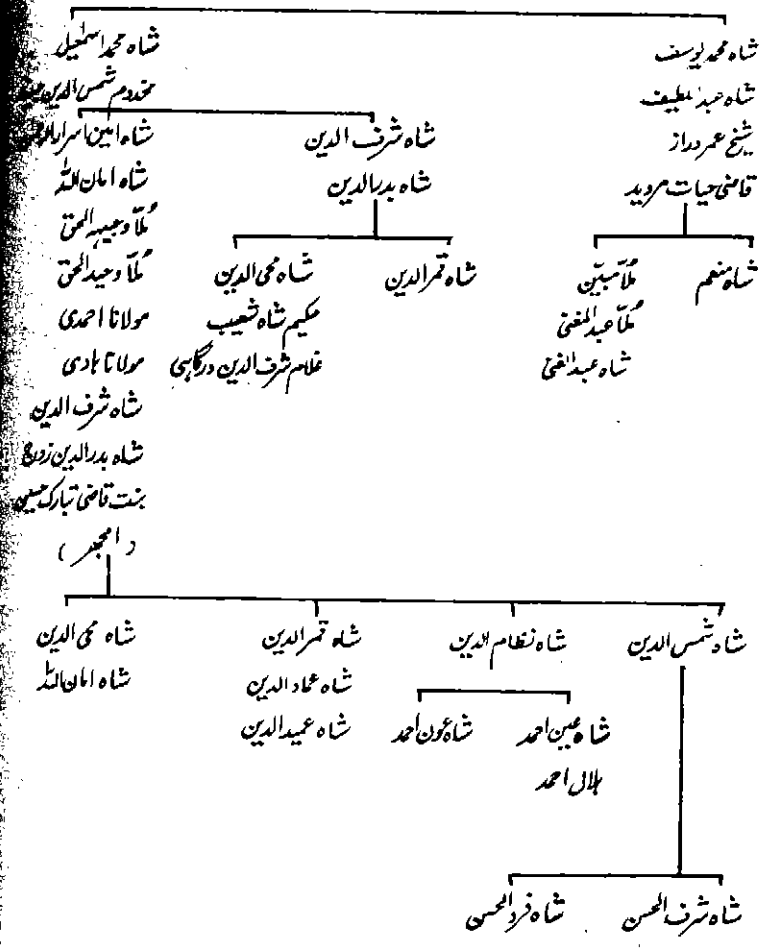 شاہ محمد یوسف
شاہ عبد لطیف
شیخ عمر دراز
قاضی حیات مرید
شاہ منعم
ملا مبین
ملا عبد المغنی
شاہ عبد الغنی
شاہ محمد اسمٰعیل
مخدوم شمس الدین
شاہ شرف الدین
شاہ بدر الدین
شاہ قمر الدین
شاہ محی الدین
حکیم شاہ شعیب
غلام شرف الدین درگاہی
شاہ امین
شاہ امان اللہ
ملا وجیہہ الحق
ملا وحید الحق
مولانا احمدی
مولانا ہادی
شاہ شرف الدین
شاہ بدر الدین زوج
بنت قاضی تبارک حسین
( امجھر )
شاہ شمس الدین
شاہ نظام الدین
شاہ قمر الدین
شاہ محی الدین
شاہ عماد الدین
شاہ امان اللہ
شاہ عمید الدین
شاہ عین احمد
شاہ عون احمد
ہلال احمد
شاہ شرف الحسن
شاہ فرد الحسن